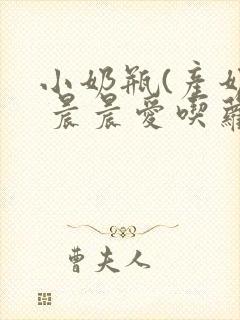 小奶瓶(產奶
晨晨愛喫蘿
曹夫人